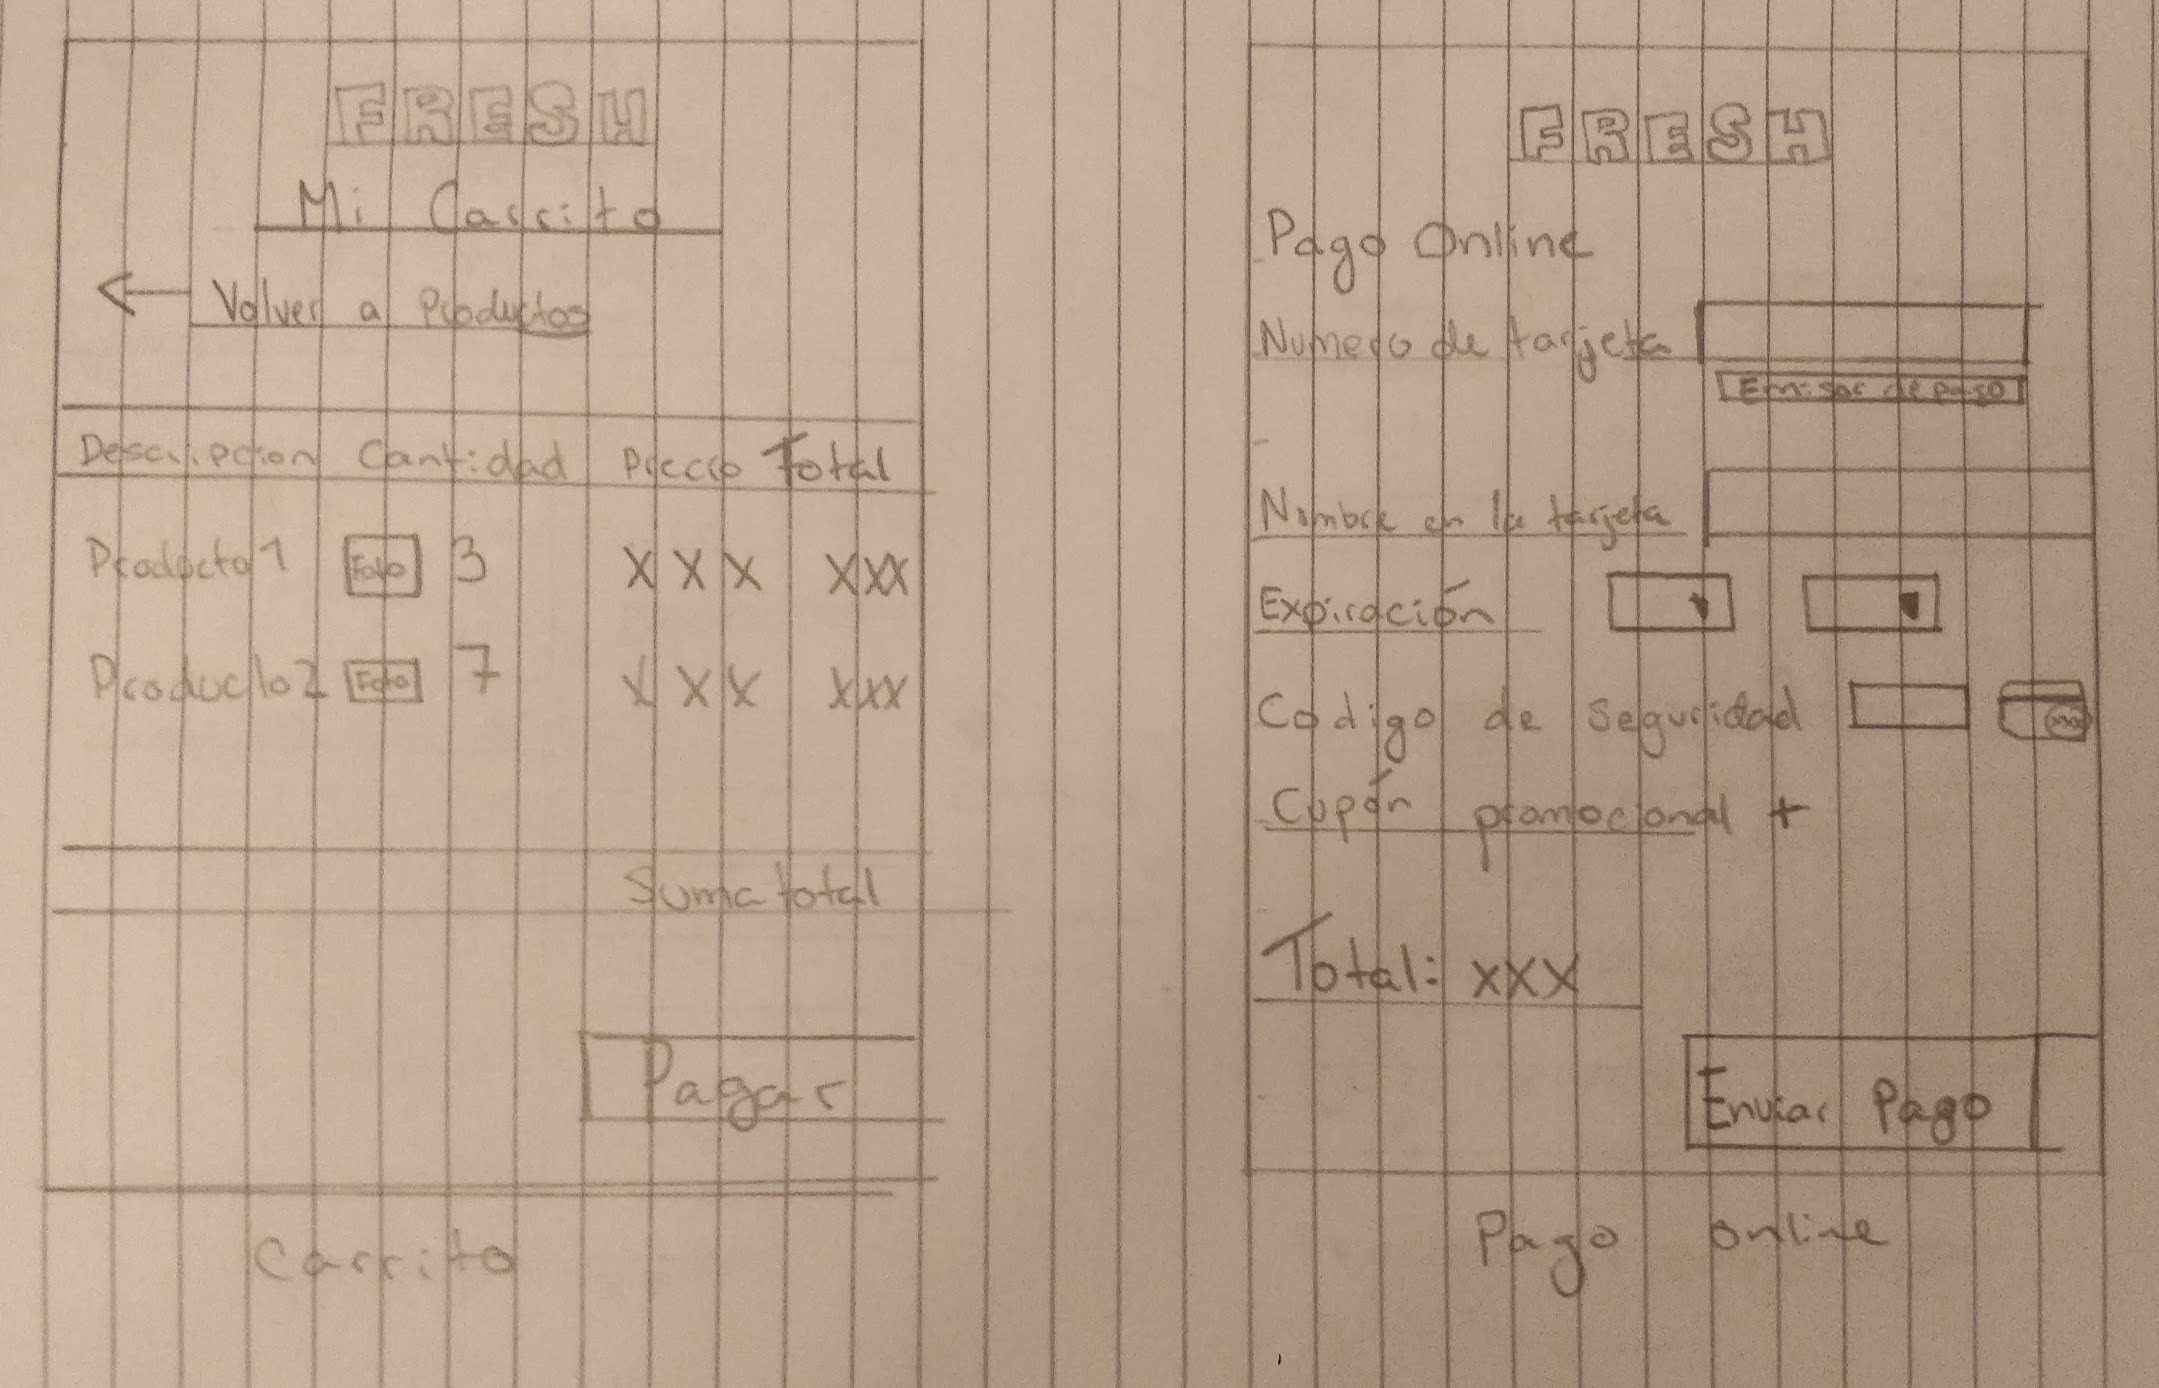 FRESH
Mi Carrito
Volver a Productos
Descripcion Cantidad Precio Total
Producto1 Foto 3 XXX XXX
Producto2 Foto 7 XXX XXX
Suma total
Pagar
Carrito
FRESH
Pago Online
Numero de tarjeta
Emisor de pago
Nombre en la tarjeta
Expiración
Codigo de seguridad xxx
Cupón promocional +
Total: XXX
Enviar Pago
Pago online